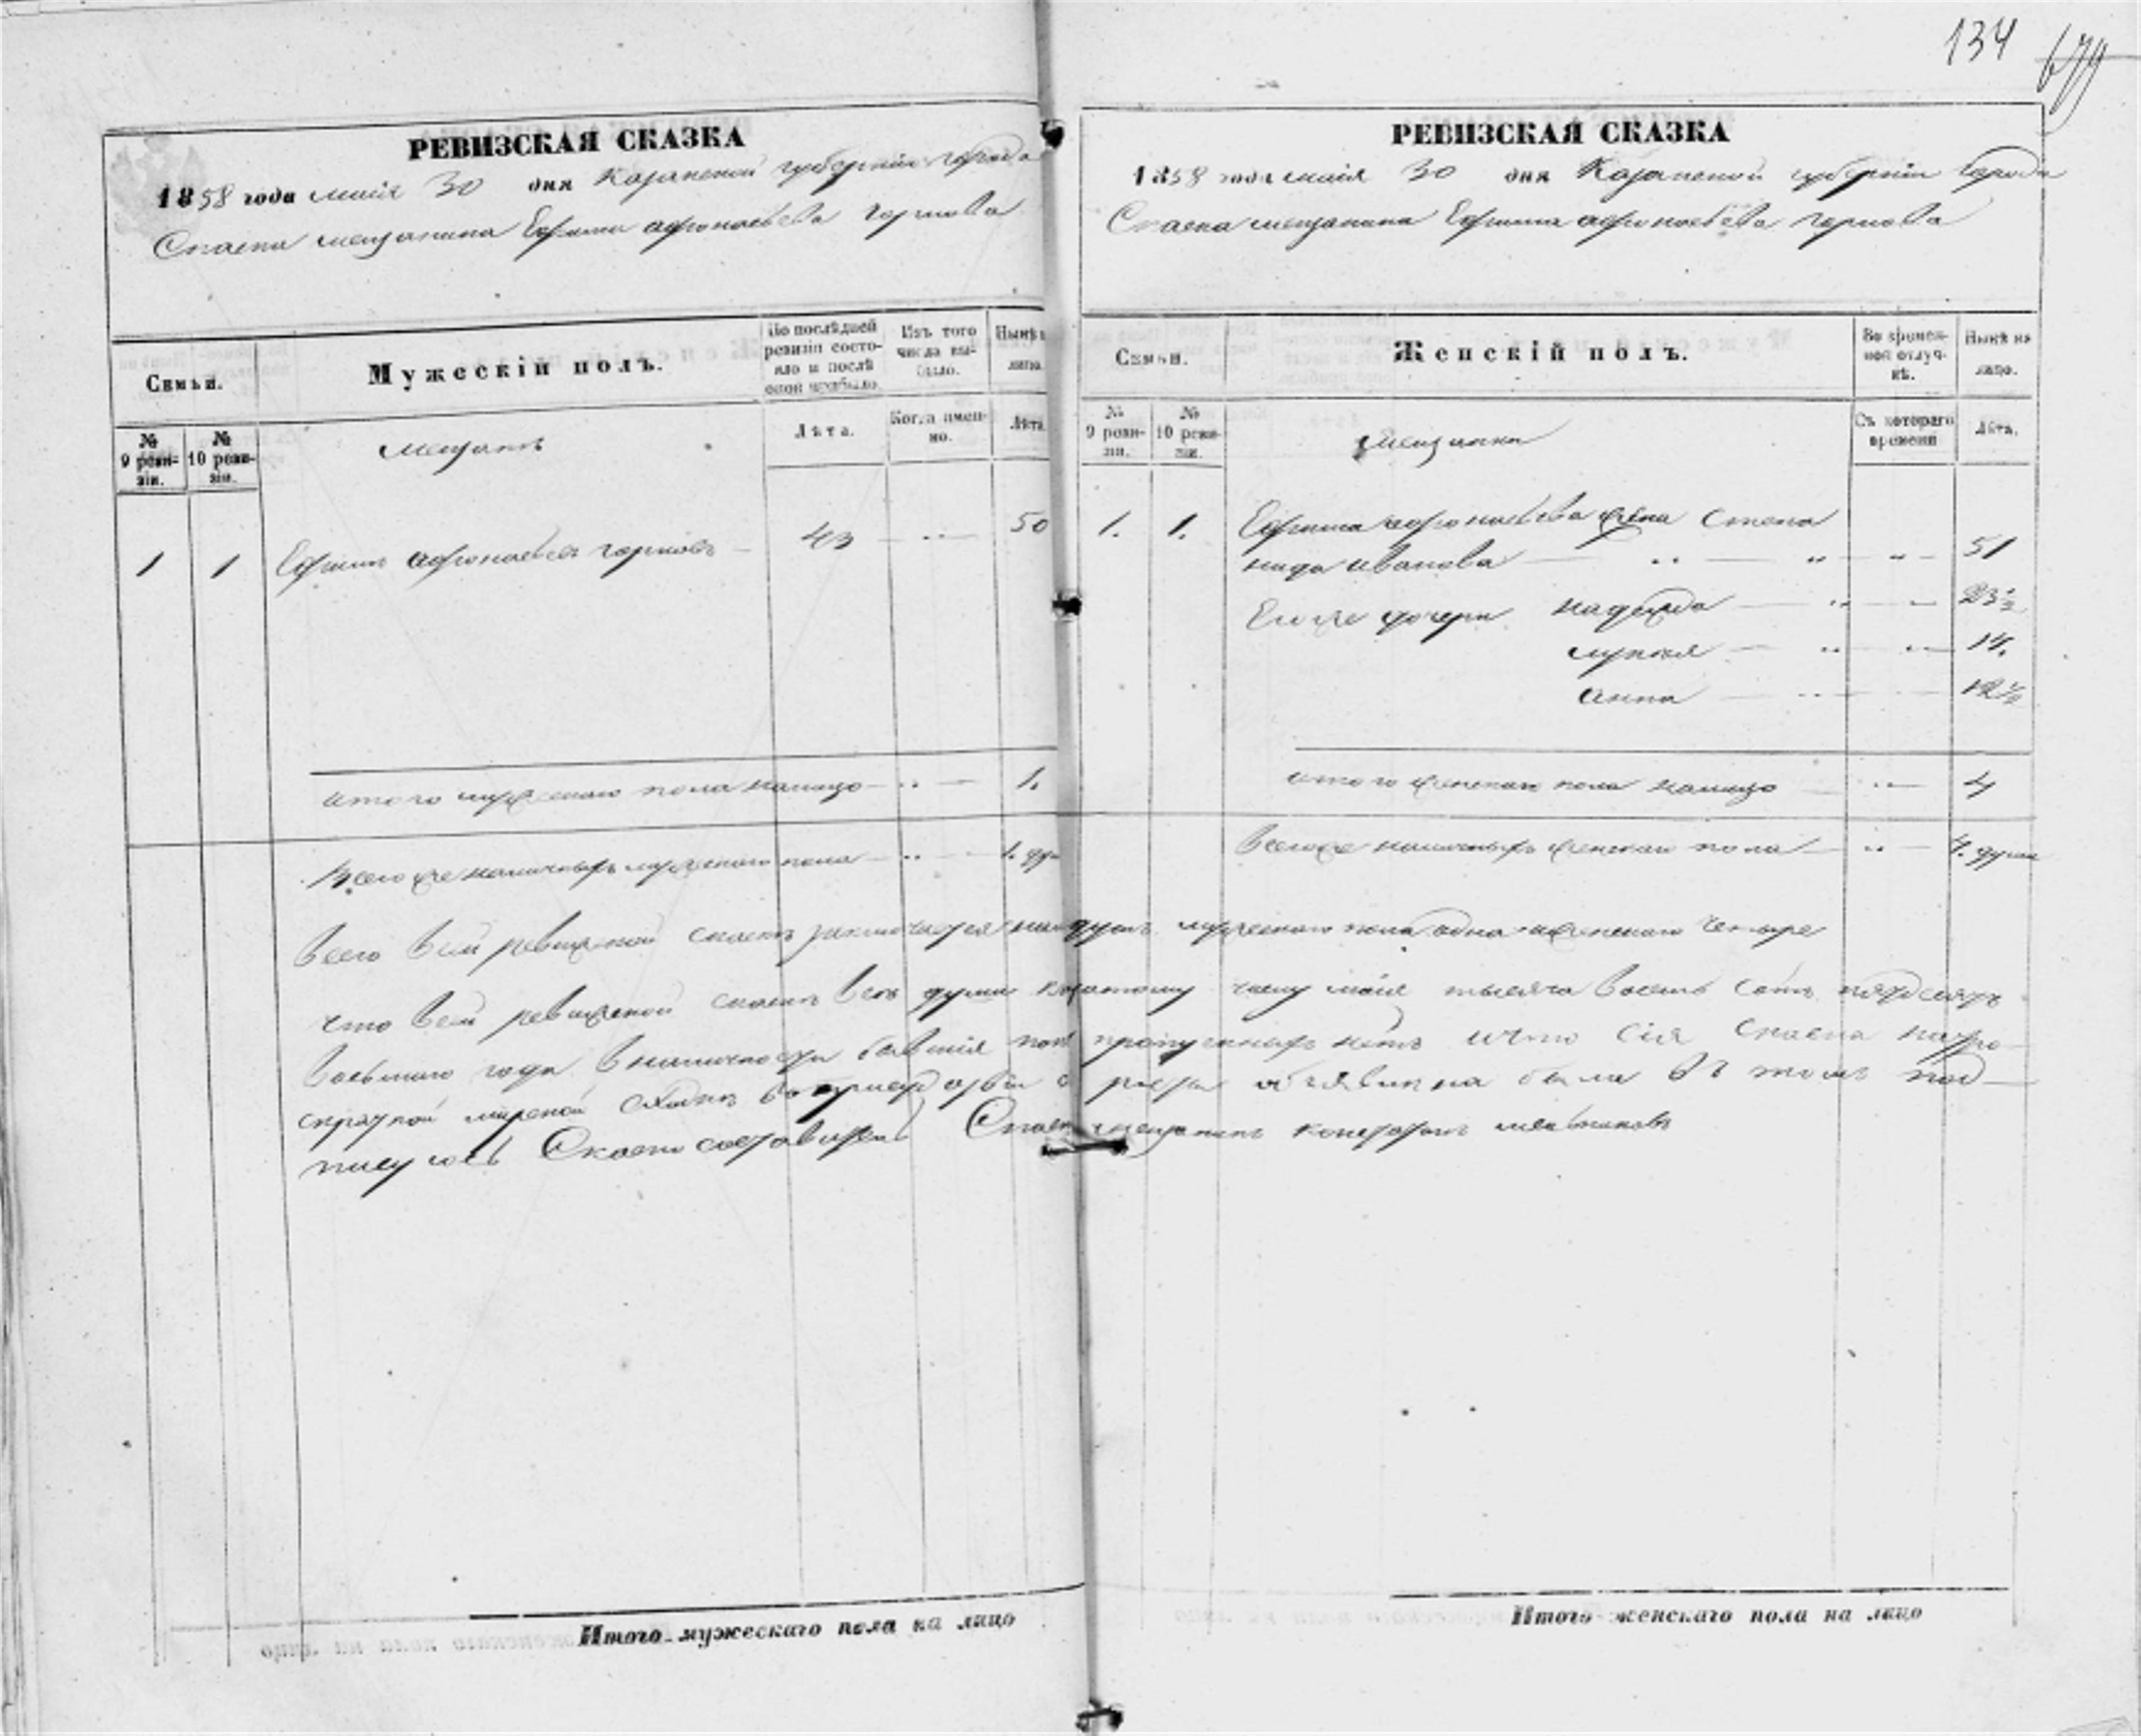 134 679
РЕВИЗСКАЯ СКАЗКА
1858 года мая 30 дня Казанской губерніи города
Спаска мещанина Ефима Афонасьева Горшова
Семьи.
Мужескій полъ.
По послѣдней ревизіи состояло и послѣ оной прибыло.
Изъ того числа выбыло.
Нынѣ на лицо.
№ 9 ревизіи.
№ 10 ревизіи.
мещане
Лѣта.
Когда именно.
Лѣта.
1 1 Ефим Афонасьев 43 50
итого мужескаго пола налицо 1.
Всего же наличныхъ мужескаго пола 1. душ
РЕВИЗСКАЯ СКАЗКА
1858 года мая 30 дня Казанской губерніи города
Спаска мещанина Ефима Афонасьева
Семьи.
Женскій полъ.
Во временной отлучкѣ.
Нынѣ на лицо.
№ 9 ревизіи.
№ 10 ревизіи.
мещанки
Съ котораго времени
Лѣта.
1. 1. Ефима Афонасьева жена Степа
нида Иванова 51
Ево же дочери Надежда 23½
14.
Анна 12½
итого женскаго пола налицо 4
Всего же наличныхъ женскаго пола 4. души
всего в сей ревижской скаске заключается душъ мужескаго пола одна женскаго четыре
что в сей ревижской скаске все души к маія тысяча восемь сотъ пятдесятъ
восьмаго года в наличности бывшія пропущенныхъ нетъ и что сія скаска
мирской объявлена была в томъ под
писуюсь Скаски составитель мещанинъ
Итого мужескаго пола на лицо
Итого женскаго пола на лицо